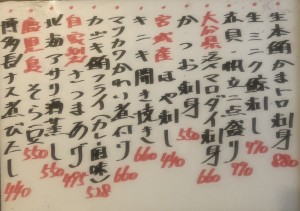 生本鮪かまトロ刺身 880
生ミンク鯨刺し 770
赤貝・帆立二点盛り 990
大分県産マロダイ刺身 660
かつお刺身 550
宮城産ほや刺し 440
キニキ開き焼き
マツカワかれい煮付け 660
カジキ鮪フライ(カレー風味) 528
自家製さつまあげ 495
北海アサリ酒蒸し 550
鹿児島そら豆 550
博多長ナス煮びたし 440